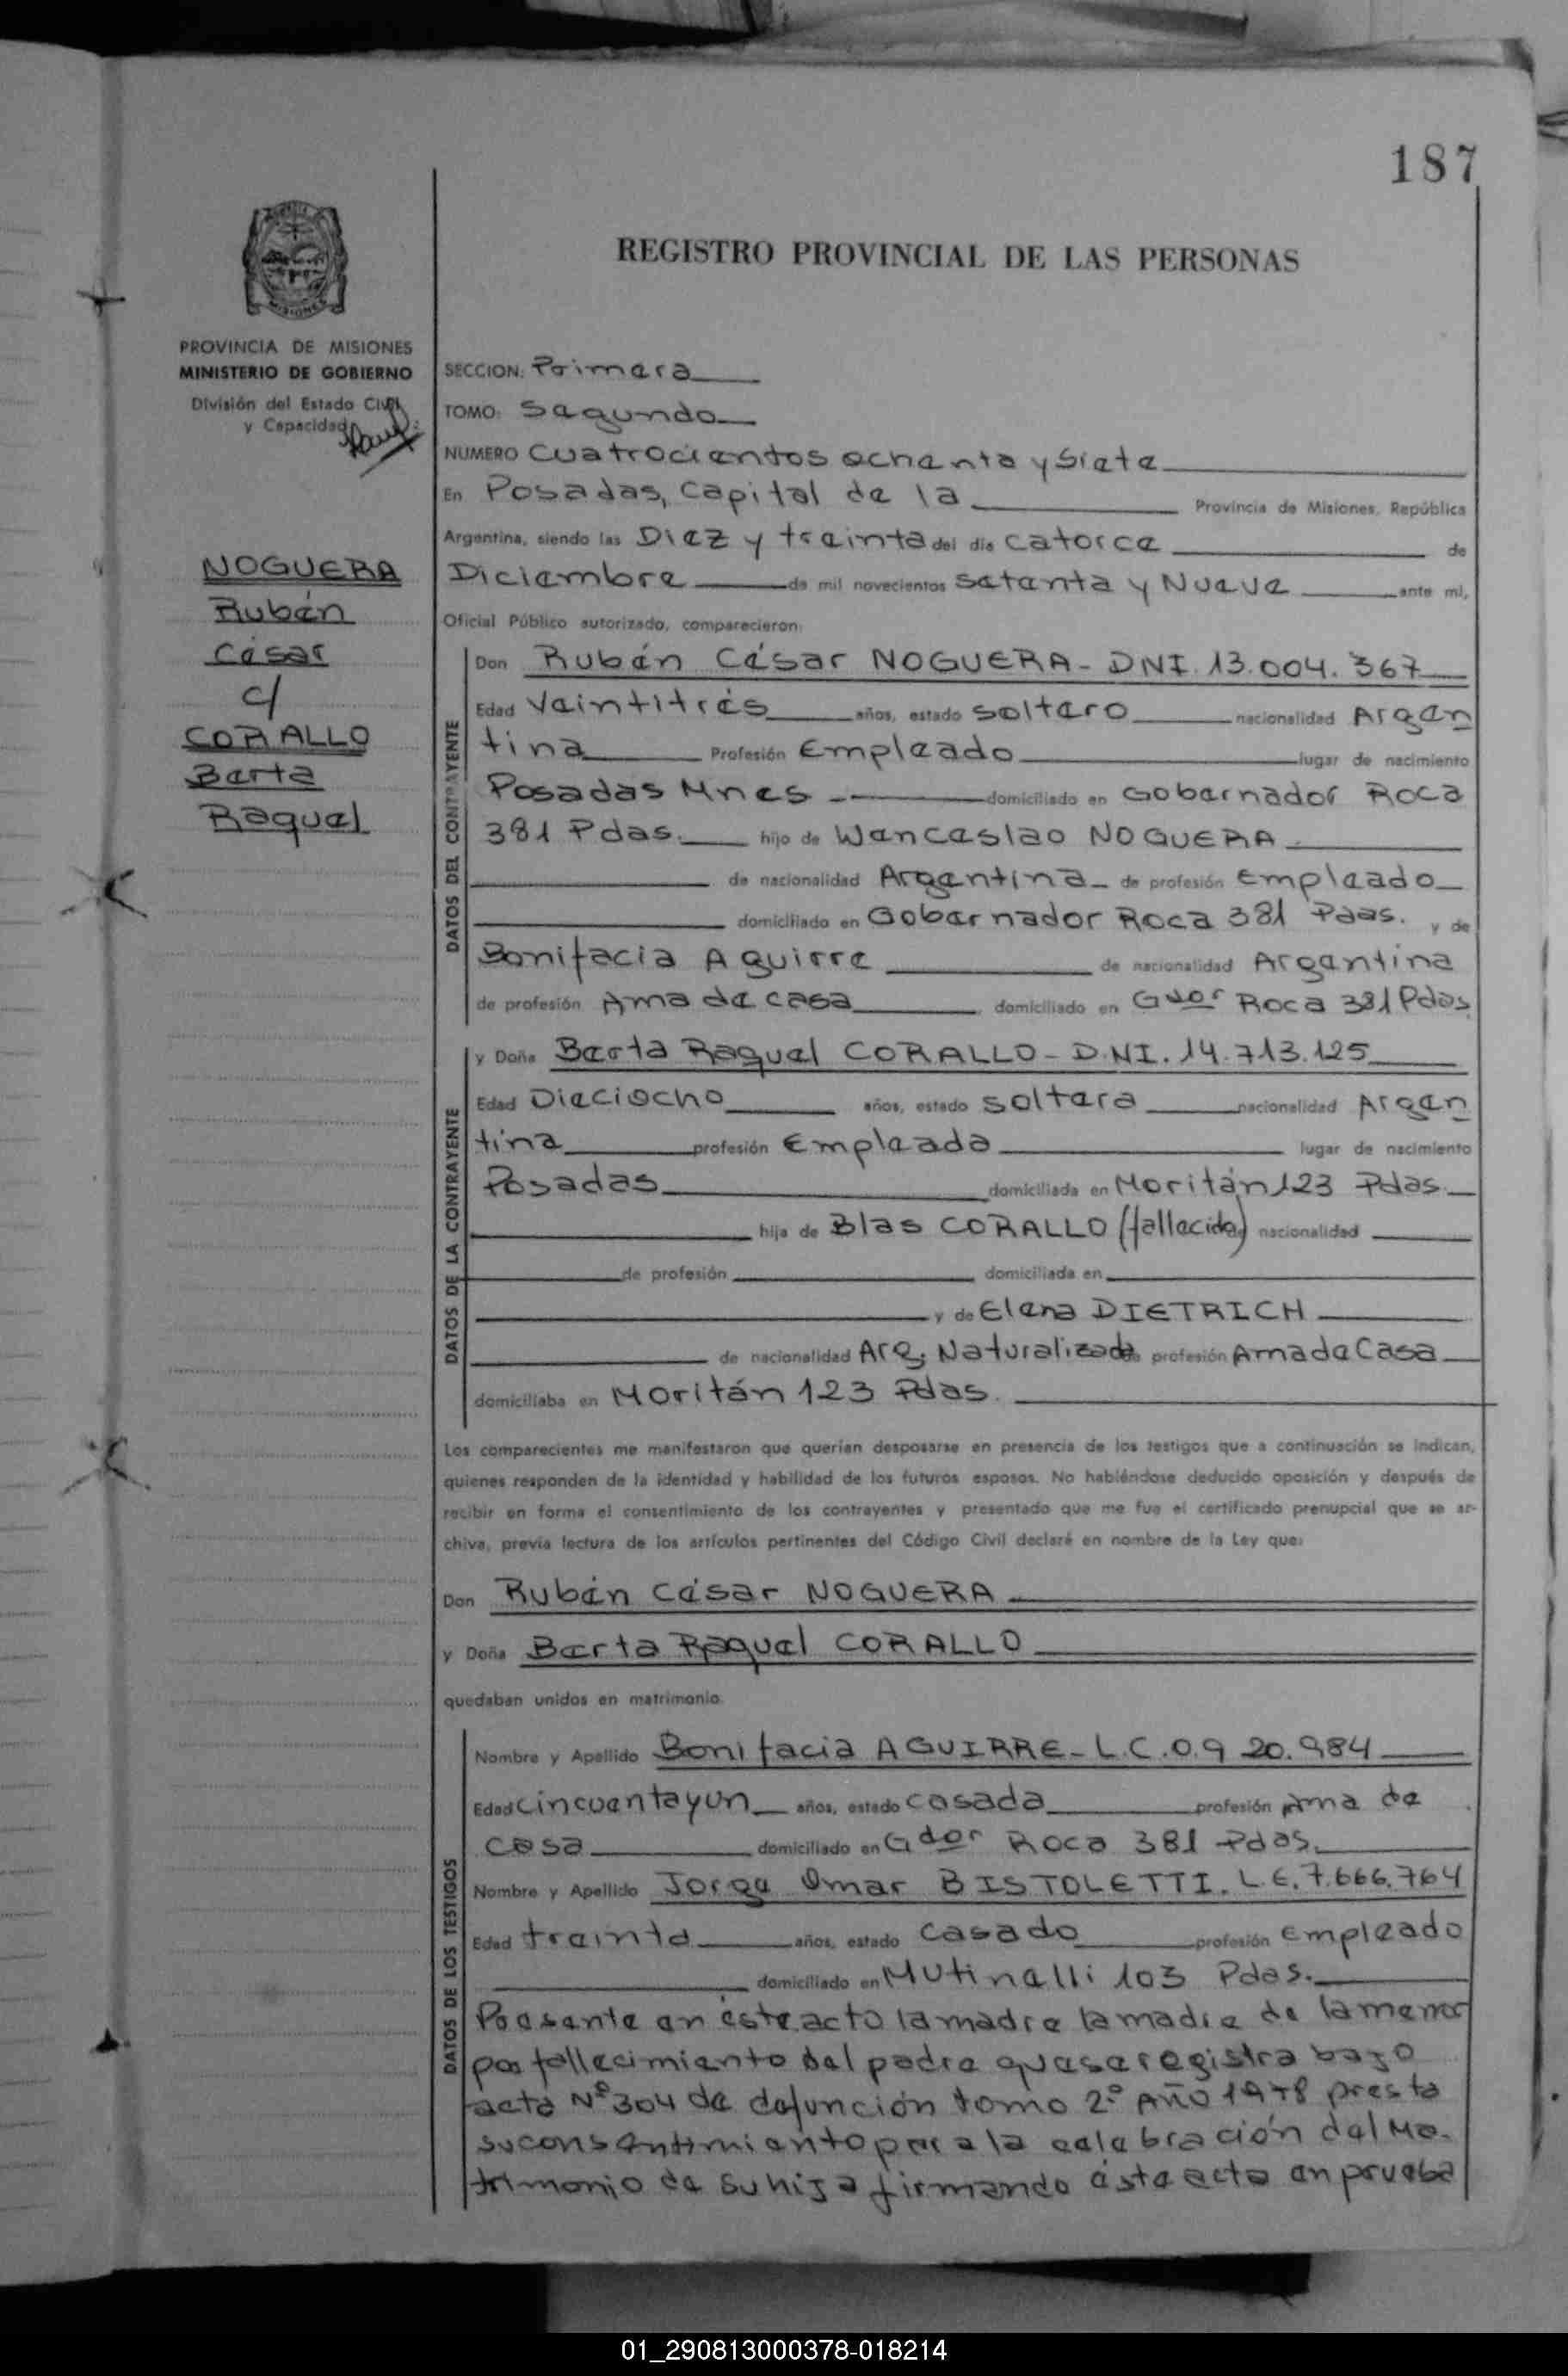 187
REGISTRO PROVINCIAL DE LAS PERSONAS
PROVINCIA DE MISIONES
MINISTERIO DE GOBIERNO
División del Estado Civil
y Capacidad
NOGUERA
Rubén
César
c/
CORALLO
Berta
Raquel
SECCION: Primera
TOMO: Segundo
NUMERO Cuatrocientos ochenta y siete
En Posadas, Capital de la Provincia de Misiones, República
Argentina, siendo las Diez y treinta del día catorce de
Diciembre de mil novecientos setenta y Nueve ante mí,
Oficial Público autorizado, comparecieron:
DATOS DEL CONTRAYENTE
Don Rubén César NOGUERA - DNI. 13.004.367
Edad Veintitrés años, estado soltero nacionalidad Argen
tina Profesión Empleado lugar de nacimiento
Posadas Mnes - domiciliado en Gobernador Roca
381 Pdas. hijo de Wenceslao NOGUERA
de nacionalidad Argentina de profesión Empleado
domiciliado en Gobernador Roca 381 Pdas. y de
Bonifacia Aguirre de nacionalidad Argentina
de profesión Ama de casa domiciliado en Gdor Roca 381 Pdas
DATOS DE LA CONTRAYENTE
y Doña Berta Raquel CORALLO - D.NI. 14.713.125
Edad Dieciocho años, estado soltera nacionalidad Argen
tina profesión Empleada lugar de nacimiento
Posadas domiciliada en Moritán 123 Pdas.
hija de Blas CORALLO (fallecido) nacionalidad
de profesión domiciliada en
y de Elena DIETRICH
de nacionalidad Arg. Naturalizada de profesión Ama de Casa
domiciliaba en Moritán 123 Pdas.
Los comparecientes me manifestaron que querían desposarse en presencia de los testigos que a continuación se indican,
quienes responden de la identidad y habilidad de los futuros esposos. No habiéndose deducido oposición y después de
recibir en forma el consentimiento de los contrayentes y presentado que me fue el certificado prenupcial que se ar-
chiva, previa lectura de los artículos pertinentes del Código Civil declaré en nombre de la Ley que:
Don Rubén César NOGUERA
y Doña Berta Raquel CORALLO
quedaban unidos en matrimonio.
DATOS DE LOS TESTIGOS
Nombre y Apellido Bonifacia AGUIRRE - L.C. 0.9 20.984
Edad Cincuenta y un años, estado casada profesión Ama de
casa domiciliado en Gdor Roca 381 Pdas.
Nombre y Apellido Jorge Omar BISTOLETTI. L.E. 7.666.764
Edad treinta años, estado Casado profesión Empleado
domiciliado en Mutinelli 103 Pdas.
Presente en éste acto la madre la madre de la menor
por fallecimiento del padre que se registra bajo
acta Nº 304 de defunción tomo 2º Año 1978 presta
su consentimiento para la celebración del Ma-
trimonio de su hija firmando ésta acta en prueba
01_290813000378-018214